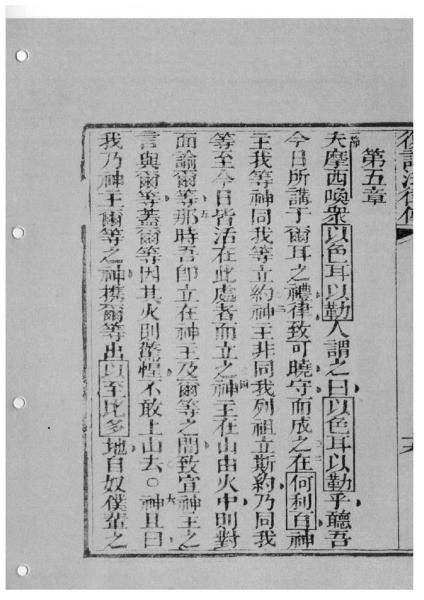 第五章
夫摩西喚衆以色耳以勒人謂之曰以色耳以勒乎聽吾
今日所講于爾耳之禮律致可曉守而成之在何利百神
主我等神同我等立約神主非同我列祖立斯約乃同我
等至今日皆活在此處者而立之神主在山由火中則對
面諭爾等那時吾即立在神主及爾等之間致宣神主之
言與爾等蓋爾等因其火則驚惶不敢上山去○神且曰
我乃神主爾等之神攜爾等出以至比多地自奴僕輩之